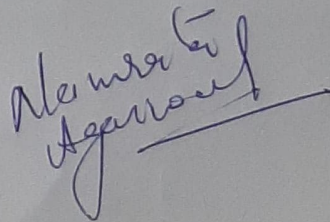 Namrata
Agarwal